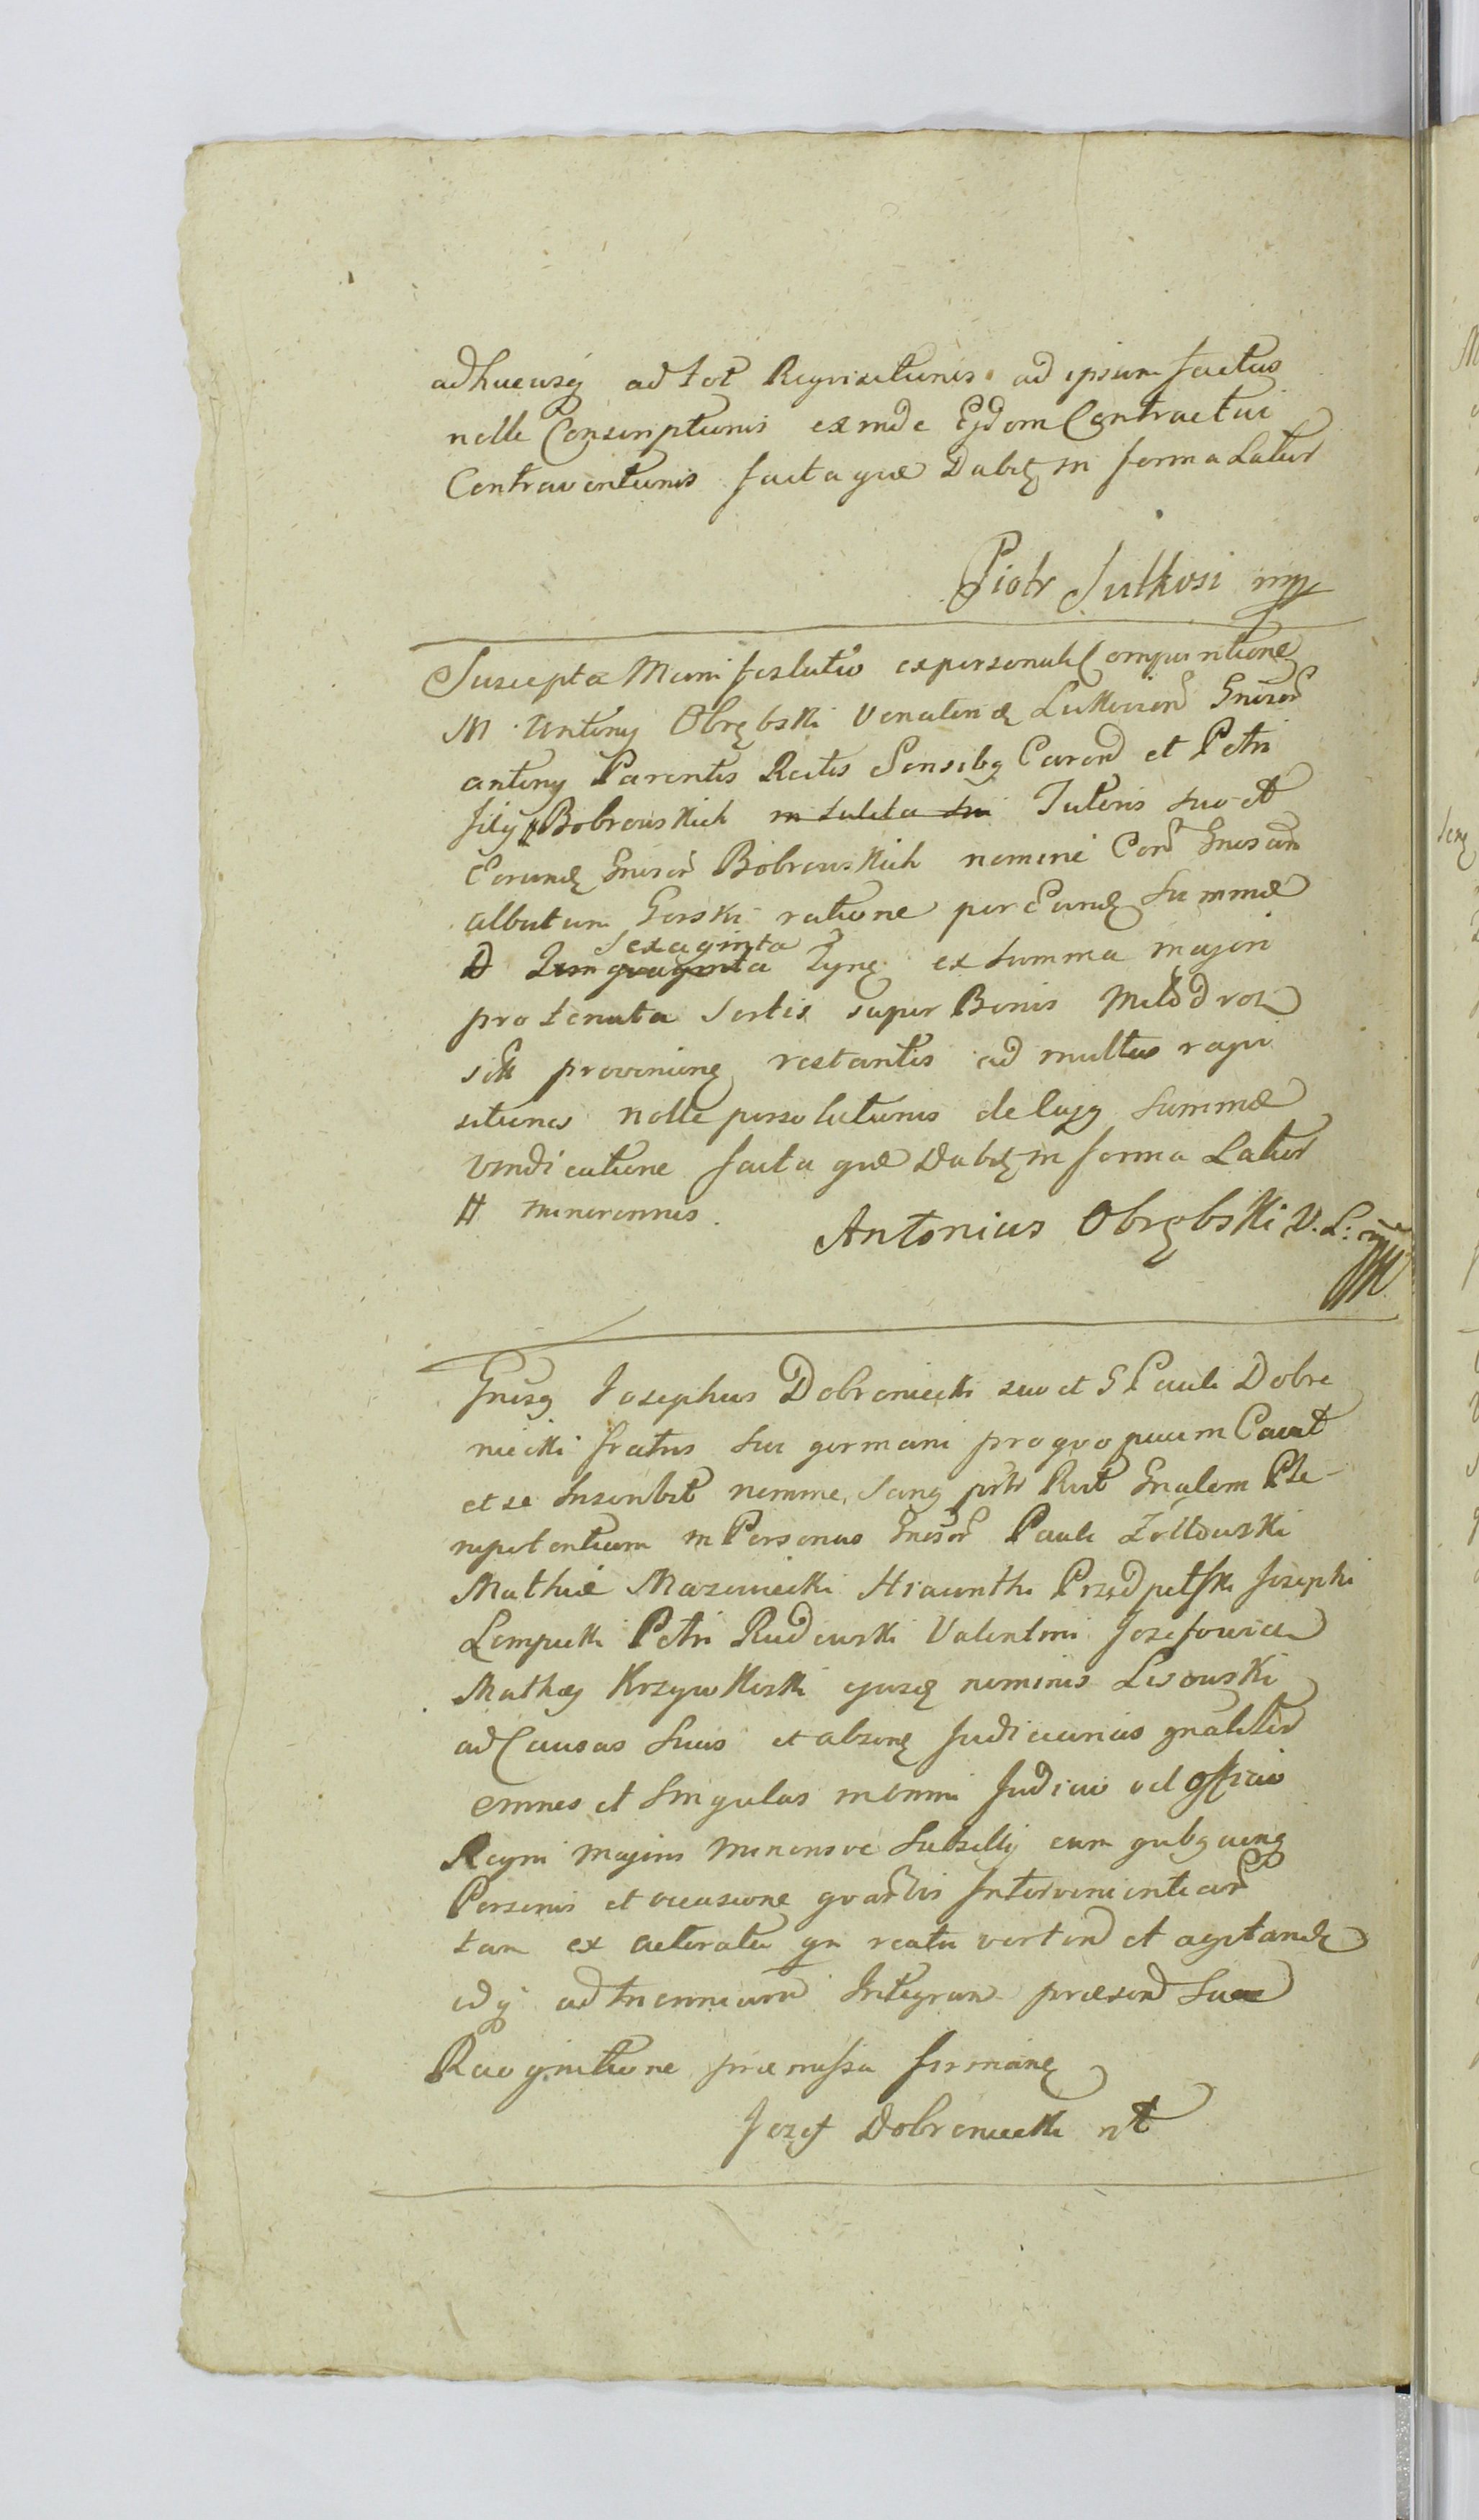 adhucusq ad tot Requisitionis ad ipsum factas
nolle Conscriptionis exinde Ejdem Contractui
Contraventionis facta quæ Dabit in forma Latius
Piotr Sutkosi mp
Suscepta Manifestatio ex personali Comparitione
M Antony Obrębski Venatoris Gnisor
antony Parentis Rectis Sensibq Carend et Petri
filij # Bobrowskich Tutoris suo et
Eorund Gnisor Bobrowskich nomine Cor Gnosam
albutum Gorski ratione per Eund Summæ
Sexaginta
Quinquaginta Tynf ex Summa majori
pro tenuta Sortis super Bonis
provenieng restantis ad multas requi
sitiones nolle persolutionis de lujq Summæ
vindicatione facta quæ Dabit in forma Latius
# minorennis.
Antonius Obrębski V. L: mp
Gnisq Josephus Dobroniecki suo et G Pauli Dobro
niecki fratris sui germani pro quo quum Cavet
et se Inscribit nomine, Sanq Gnalem Ple-
nipotentiam in Personas Gnisor Pauli Żołtowski
Mathiæ Mazowiecki Hiacinthi Przedpełski Josephi
Lempicki Petri Rudowski Valentini Jozefowicz
Mathæj Krzywkoski ejusq nominis Lisowski
ad Causas Suas et absenq Judiciarias gnaliter
omnes et Singulas in omni Judicio vel officio
Regni Majoris Minorisve Subsellij cum qubqcunq
Personis et occasione quarvis Intervenientiar
tam ex actoratu qm reatu vertend et agitand
idq ad triennium Integrum præsend Suæ
Recognitione præmissa firmanq
Jozef Dobroniecki